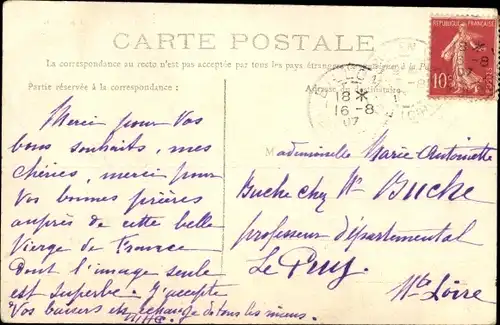 CARTE POSTALE
La correspondance au recto n'est pas acceptée par tous les pays étrangers
Partie réservée à la correspondance :
RÉPUBLIQUE FRANÇAISE
10
18
16-8
07
Merci pour Vos
bons souhaits, mes
chéries, merci pour
Vos bonnes prières
auprès de cette belle
Vierge de France
Dont l'image seule
est superbe. J'accepte
Vos baisers en échange de tous les miens.
Mademoiselle Marie Antoinette
Buche chez Mr Buche
professeur départemental
Le Puy
Hte Loire